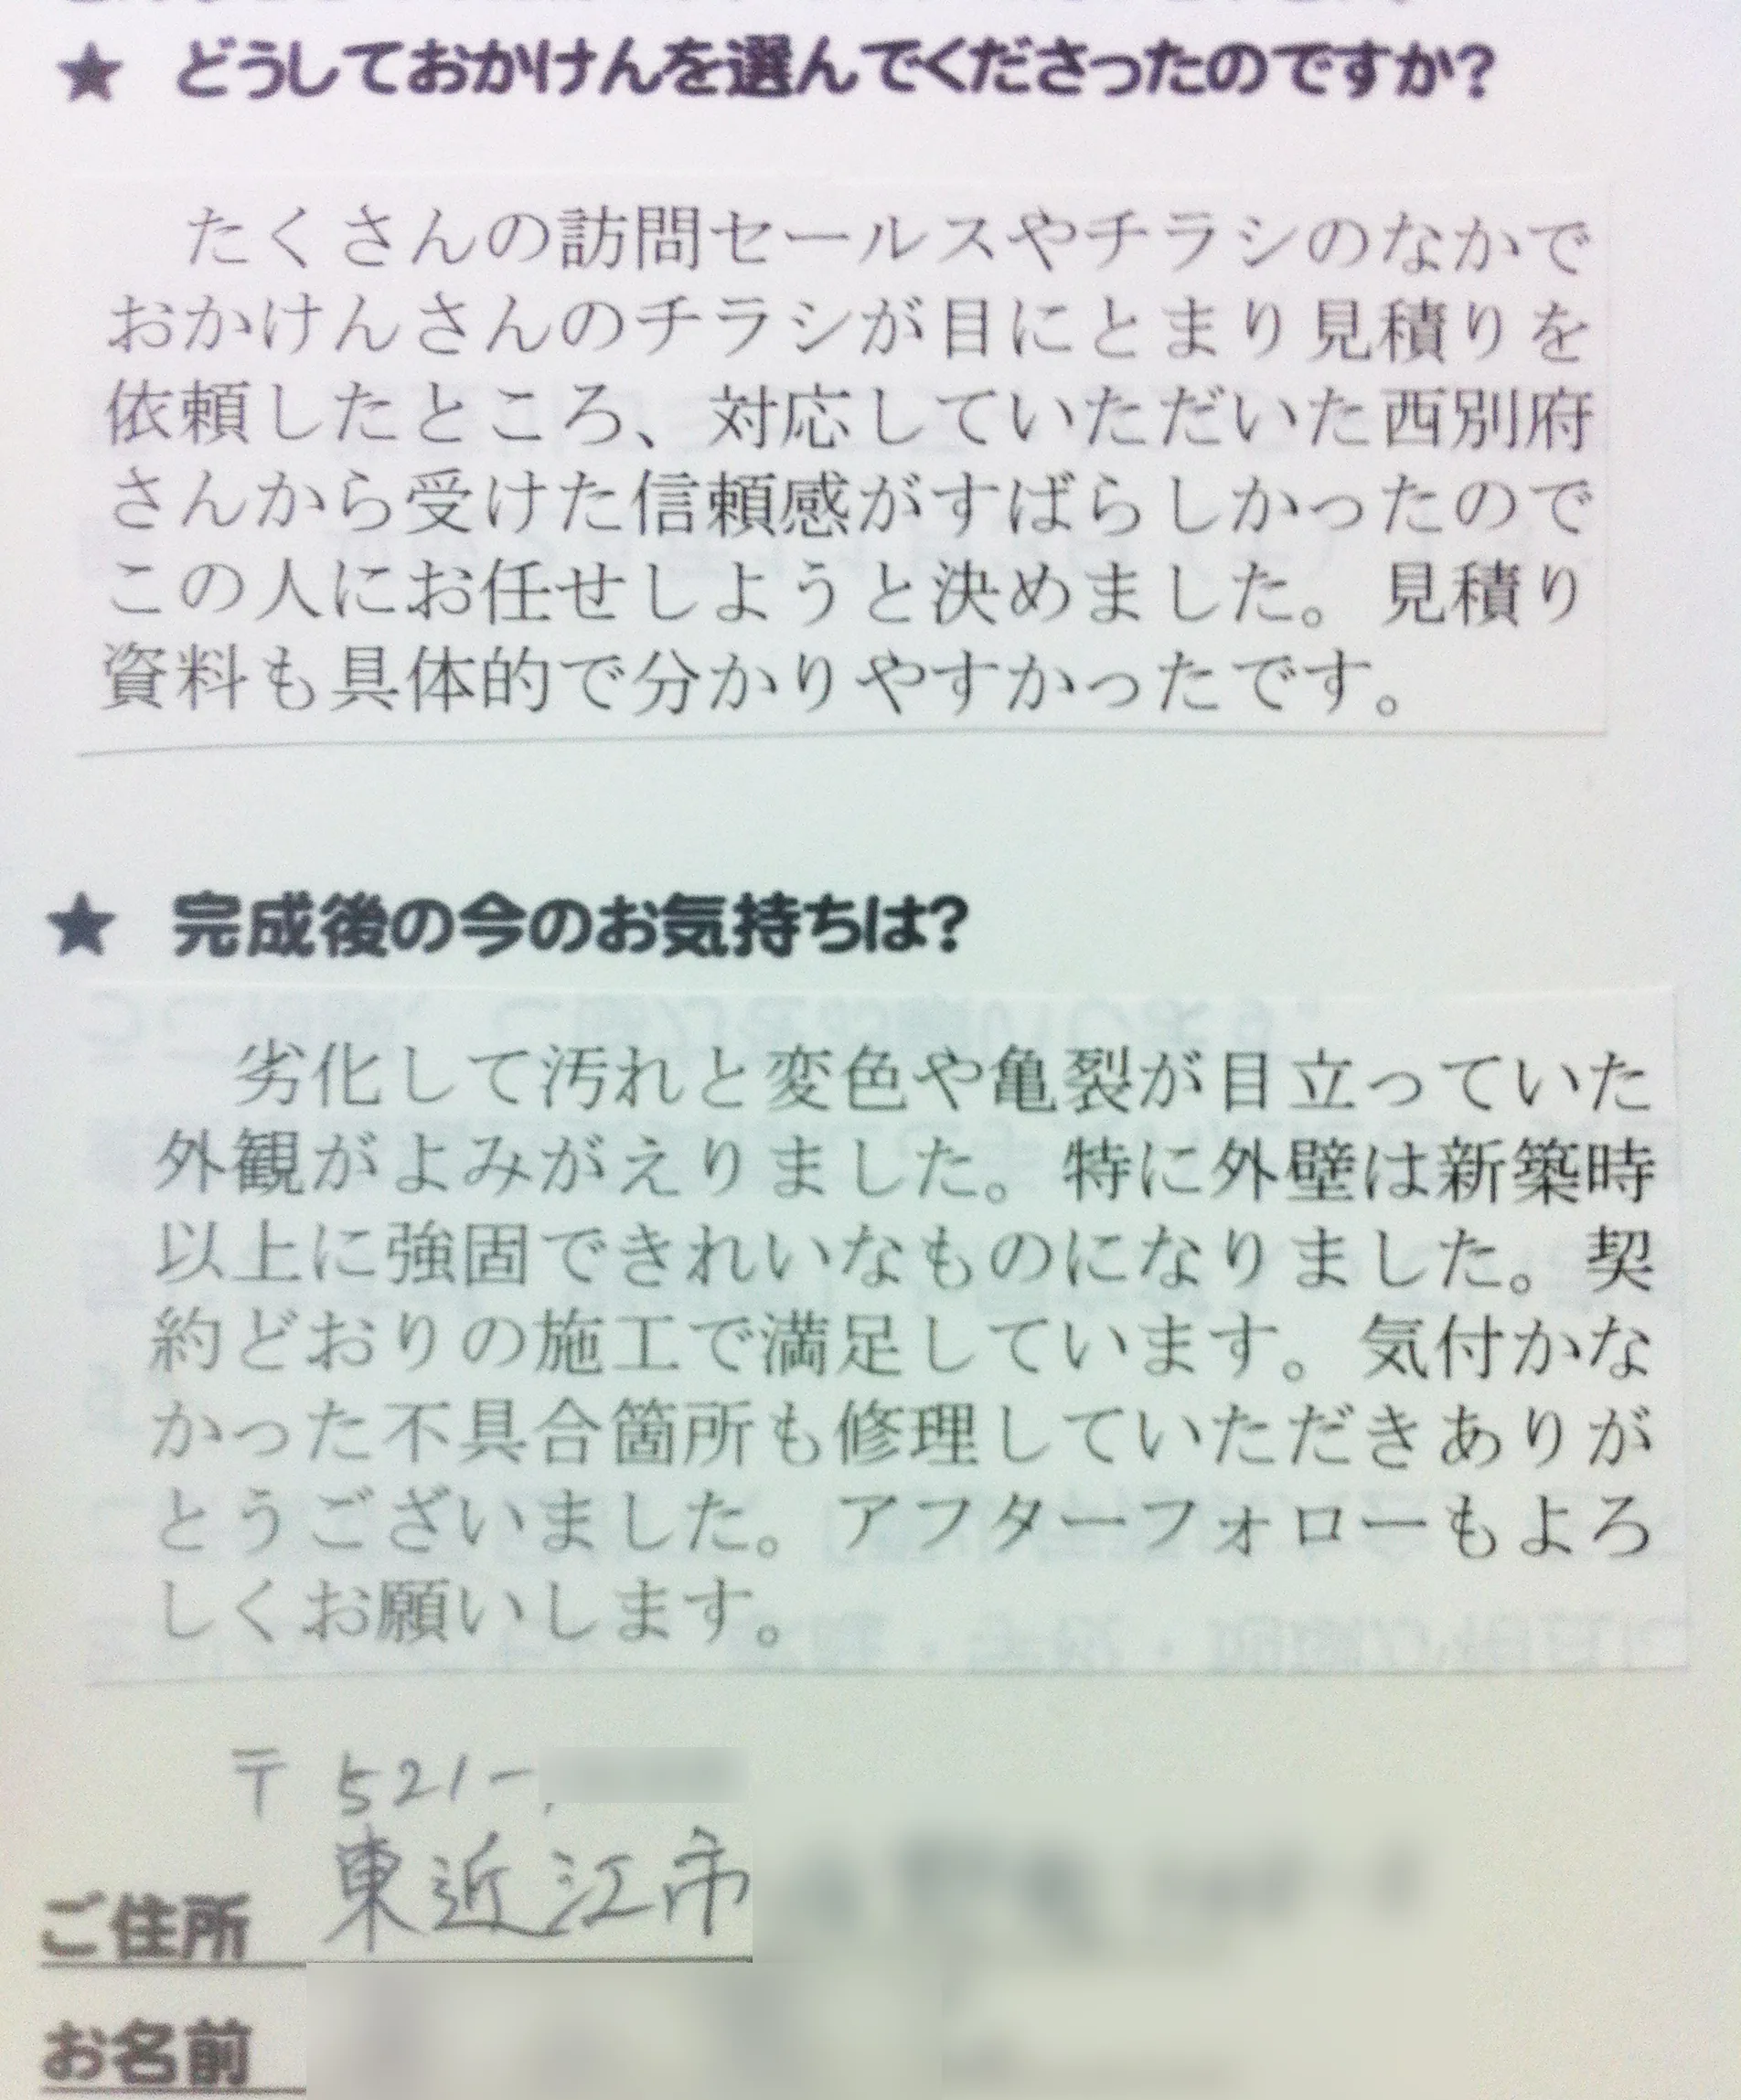 ★ どうしておかけんを選んでくださったのですか?
たくさんの訪問セールスやチラシのなかで
おかけんさんのチラシが目にとまり見積りを
依頼したところ、対応していただいた西別府
さんから受けた信頼感がすばらしかったので
この人にお任せしようと決めました。見積り
資料も具体的で分かりやすかったです。
★ 完成後の今のお気持ちは?
劣化して汚れと変色や亀裂が目立っていた
外観がよみがえりました。特に外壁は新築時
以上に強固できれいなものになりました。契
約どおりの施工で満足しています。気付かな
かった不具合箇所も修理していただきありが
とうございました。アフターフォローもよろ
しくお願いします。
〒521-
ご住所 東近江市
お名前